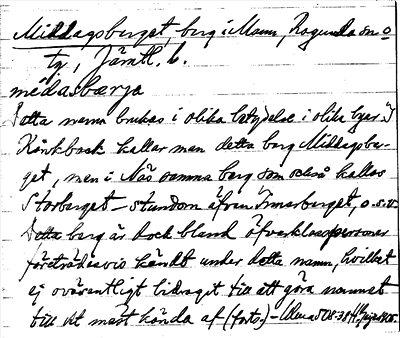 Middagsberget, berg i Mann, Ragunda sn o
tg, Jämtl. l.
médasbærja
Detta namn brukas i olika betydelse i olika byar. I
Kånkback kallar man detta berg Middagsber-
get, men i Näs samma berg som också kallas
Storberget – stundom äfven Innerberget, o.s.v.
Detta berg är dock bland öfverklasspersoner
företrädesvis kändt under detta namn, hvilket
ej oväsentligt bidraget till att göra namnet
till det mest kända af (forts.) –